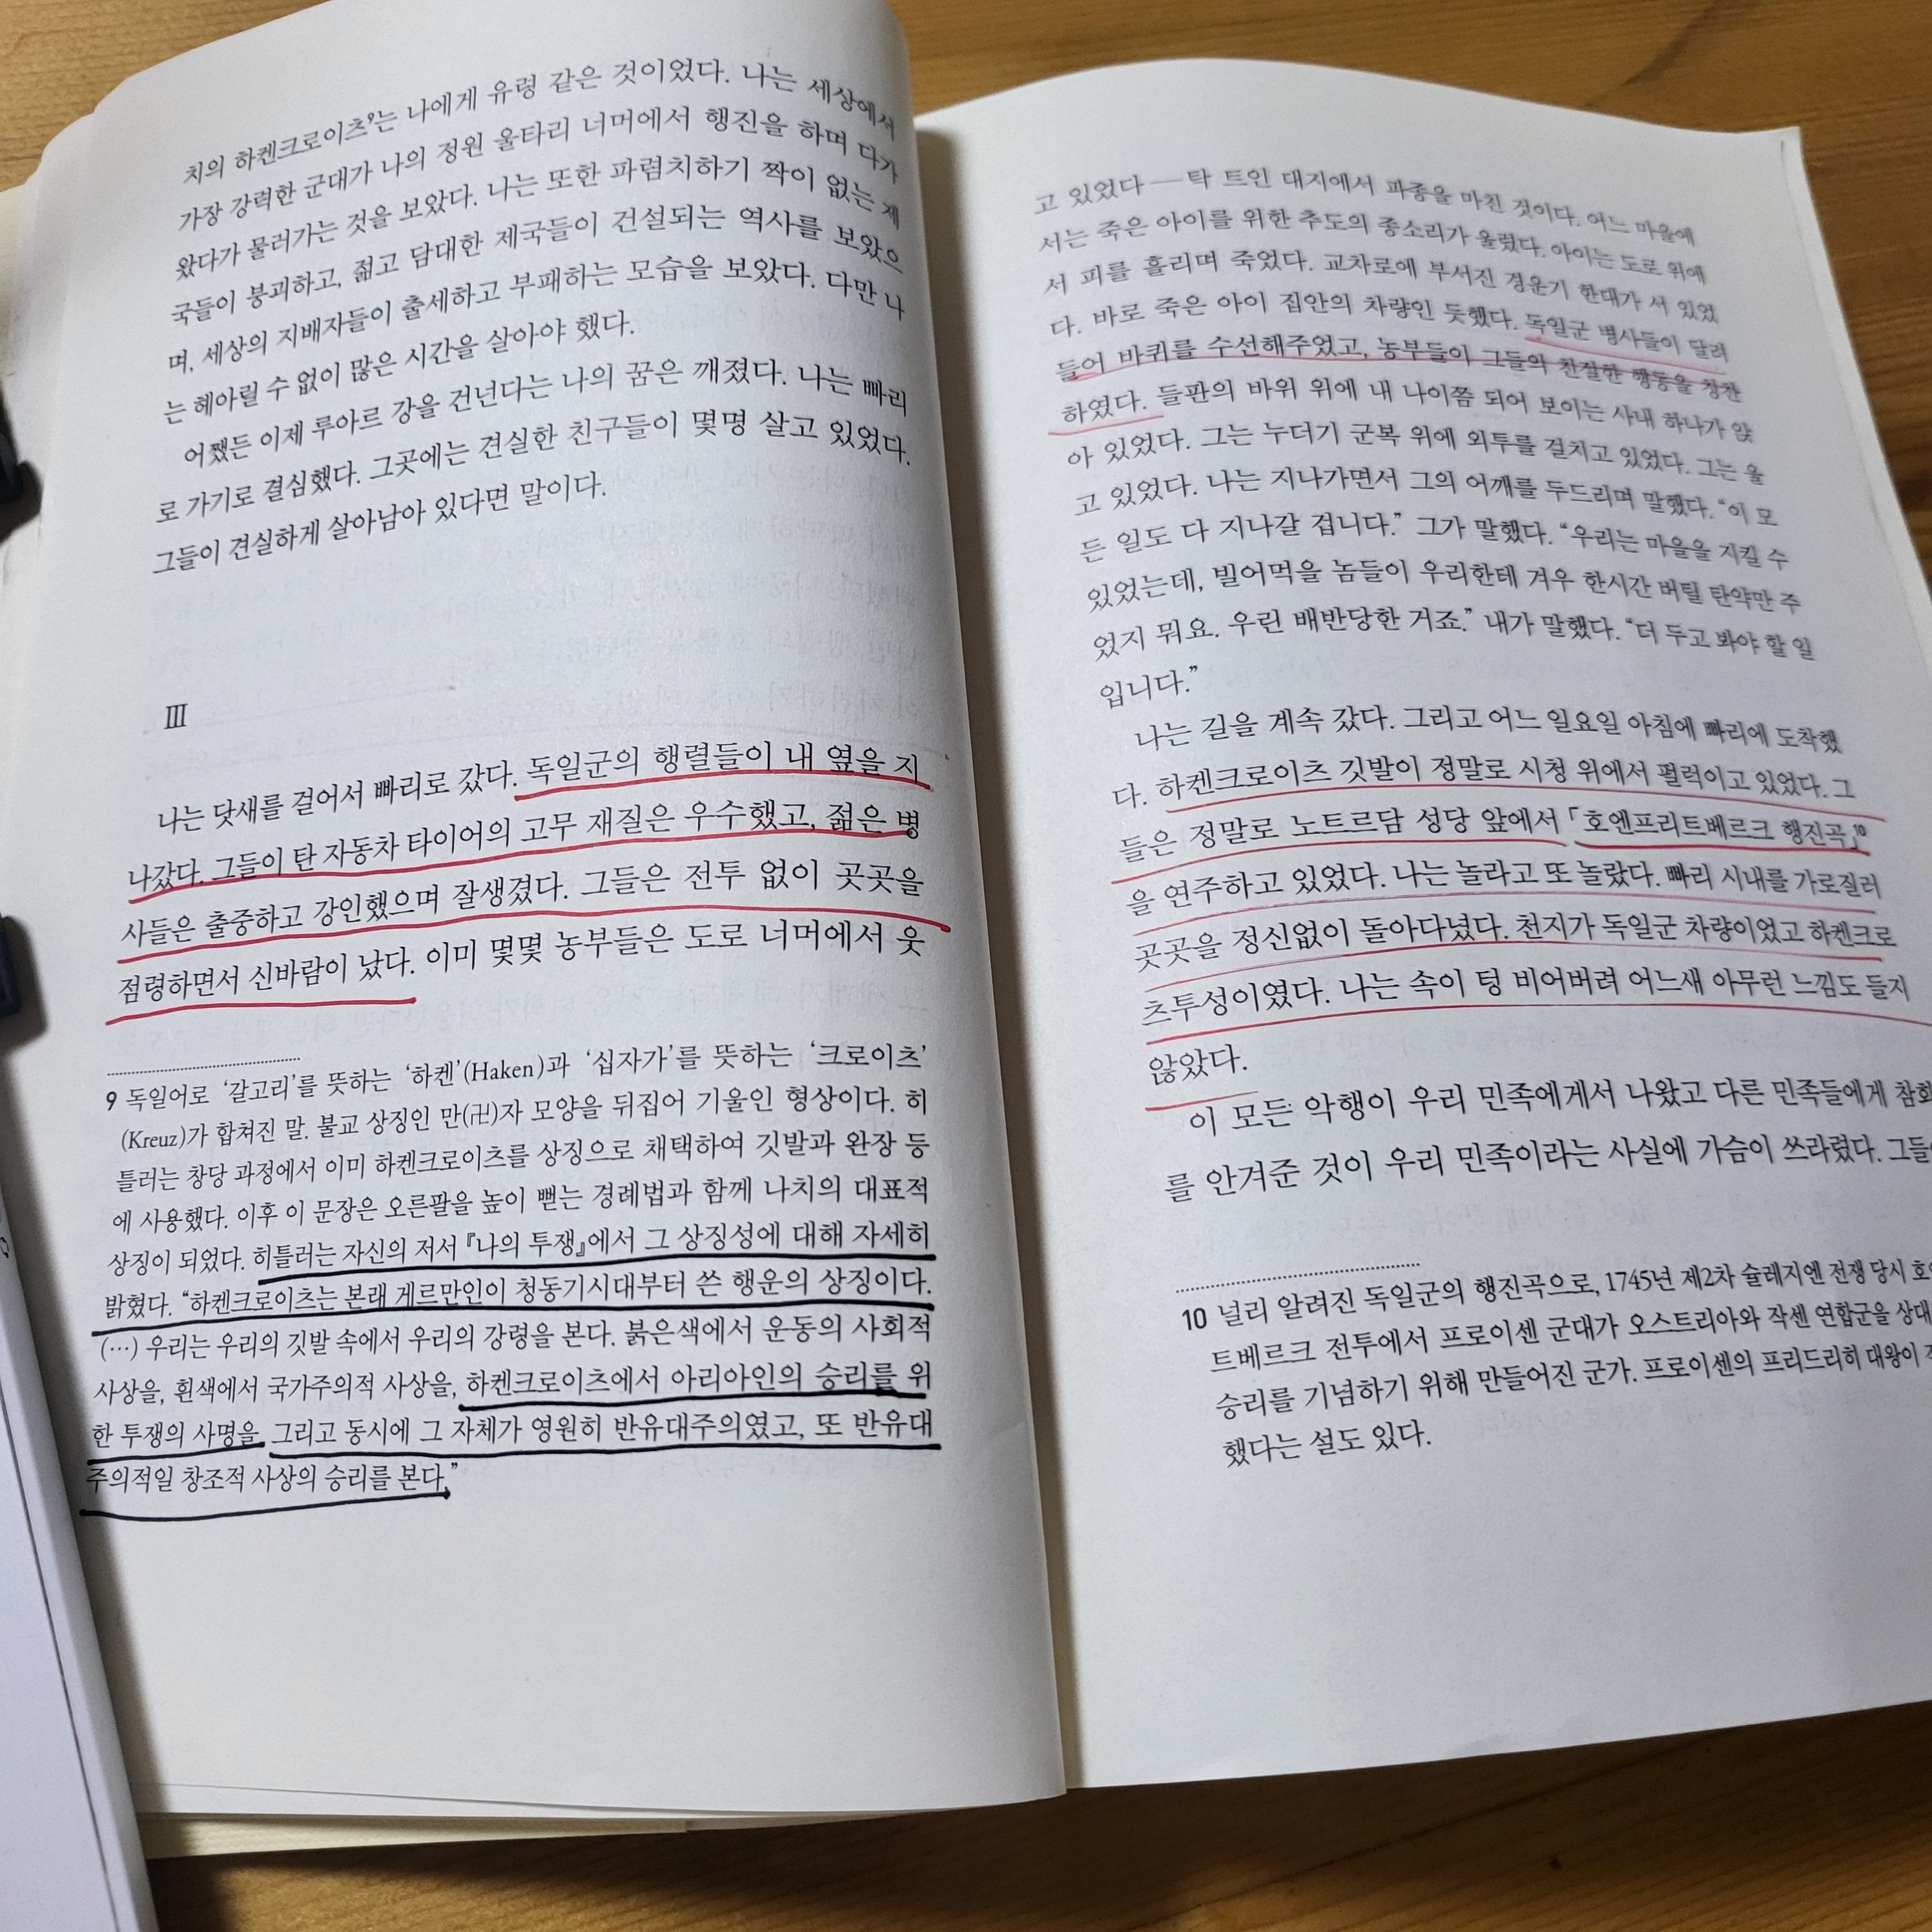 치의 하켄크로이츠⁹는 나에게 유령 같은 것이었다. 나는 세상에서
가장 강력한 군대가 나의 정원 울타리 너머에서 행진을 하며 다가
왔다가 물러가는 것을 보았다. 나는 또한 파렴치하기 짝이 없는 제
국들이 붕괴하고, 젊고 담대한 제국들이 건설되는 역사를 보았으
며, 세상의 지배자들이 출세하고 부패하는 모습을 보았다. 다만 나
는 헤아릴 수 없이 많은 시간을 살아야 했다.
어쨌든 이제 루아르 강을 건넌다는 나의 꿈은 깨졌다. 나는 빠리
로 가기로 결심했다. 그곳에는 견실한 친구들이 몇명 살고 있었다.
그들이 견실하게 살아남아 있다면 말이다.
Ⅲ
나는 닷새를 걸어서 빠리로 갔다. 독일군의 행렬들이 내 옆을 지
나갔다. 그들이 탄 자동차 타이어의 고무 재질은 우수했고, 젊은 병
사들은 출중하고 강인했으며 잘생겼다. 그들은 전투 없이 곳곳을
점령하면서 신바람이 났다. 이미 몇몇 농부들은 도로 너머에서 웃
9 독일어로 ‘갈고리’를 뜻하는 ‘하켄’(Haken)과 ‘십자가’를 뜻하는 ‘크로이츠’
(Kreuz)가 합쳐진 말. 불교 상징인 만(卍)자 모양을 뒤집어 기울인 형상이다. 히
틀러는 창당 과정에서 이미 하켄크로이츠를 상징으로 채택하여 깃발과 완장 등
에 사용했다. 이후 이 문장은 오른팔을 높이 뻗는 경례법과 함께 나치의 대표적
상징이 되었다. 히틀러는 자신의 저서 『나의 투쟁』에서 그 상징성에 대해 자세히
밝혔다. “하켄크로이츠는 본래 게르만인이 청동기시대부터 쓴 행운의 상징이다.
(…) 우리는 우리의 깃발 속에서 우리의 강령을 본다. 붉은색에서 운동의 사회적
사상을, 흰색에서 국가주의적 사상을, 하켄크로이츠에서 아리아인의 승리를 위
한 투쟁의 사명을, 그리고 동시에 그 자체가 영원히 반유대주의였고, 또 반유대
주의적일 창조적 사상의 승리를 본다.”
고 있었다—탁 트인 대지에서 파종을 마친 것이다. 어느 마을에
서는 죽은 아이를 위한 추도의 종소리가 울렸다. 아이는 도로 위에
서 피를 흘리며 죽었다. 교차로에 부서진 경운기 한대가 서 있었
다. 바로 죽은 아이 집안의 차량인 듯했다. 독일군 병사들이 달려
들어 바퀴를 수선해주었고, 농부들이 그들의 친절한 행동을 칭찬
하였다. 들판의 바위 위에 내 나이쯤 되어 보이는 사내 하나가 앉
아 있었다. 그는 누더기 군복 위에 외투를 걸치고 있었다. 그는 울
고 있었다. 나는 지나가면서 그의 어깨를 두드리며 말했다. “이 모
든 일도 다 지나갈 겁니다.” 그가 말했다. “우리는 마을을 지킬 수
있었는데, 빌어먹을 놈들이 우리한테 겨우 한시간 버틸 탄약만 주
었지 뭐요. 우린 배반당한 거죠.” 내가 말했다. “더 두고 봐야 할 일
입니다.”
나는 길을 계속 갔다. 그리고 어느 일요일 아침에 빠리에 도착했
다. 하켄크로이츠 깃발이 정말로 시청 위에서 펄럭이고 있었다. 그
들은 정말로 노트르담 성당 앞에서 「호엔프리트베르크 행진곡」¹⁰
을 연주하고 있었다. 나는 놀라고 또 놀랐다. 빠리 시내를 가로질러
곳곳을 정신없이 돌아다녔다. 천지가 독일군 차량이었고 하켄크로
츠투성이였다. 나는 속이 텅 비어버려 어느새 아무런 느낌도 들지
않았다.
이 모든 악행이 우리 민족에게서 나왔고 다른 민족들에게 참화
를 안겨준 것이 우리 민족이라는 사실에 가슴이 쓰라렸다. 그들
10 널리 알려진 독일군의 행진곡으로, 1745년 제2차 슐레지엔 전쟁 당시 호
트베르크 전투에서 프로이센 군대가 오스트리아와 작센 연합군을 상대
승리를 기념하기 위해 만들어진 군가. 프로이센의 프리드리히 대왕이
했다는 설도 있다.